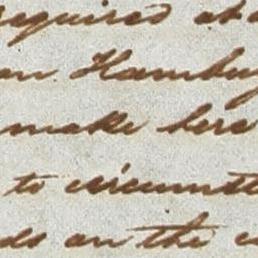 required at
an Hambu
make here
to circumst
ds on the